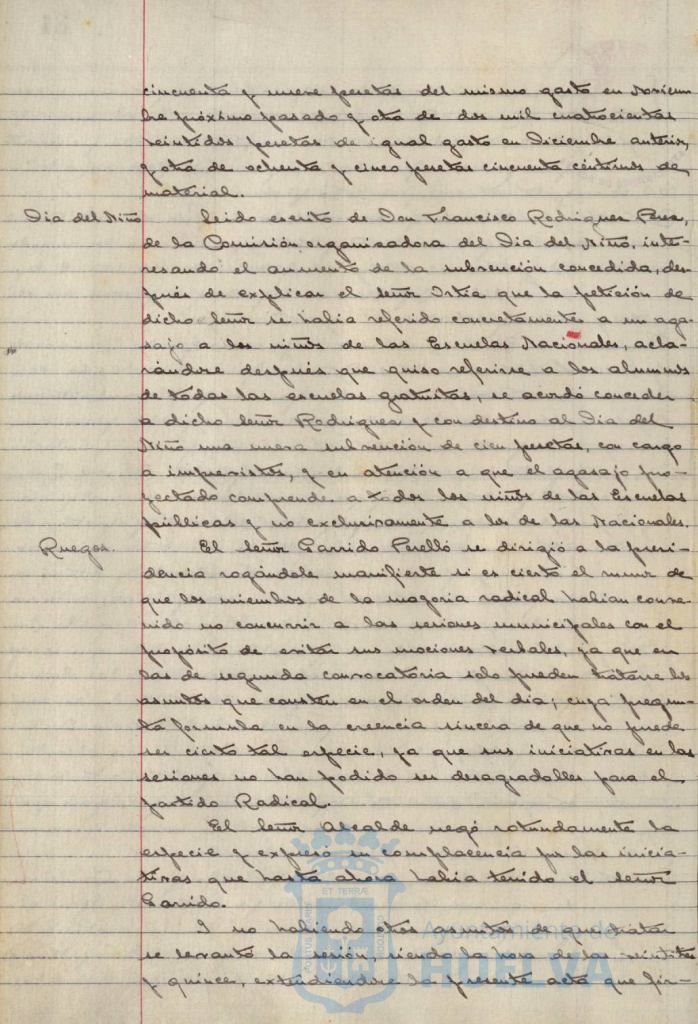 cincuenta y nueve pesetas del mismo gasto en Noviem-
bre próximo pasado y otra de dos mil cuatrocientas
veintidos pesetas de igual gasto en Diciembre anterior,
y otra de ochenta y cinco pesetas cincuenta céntimos de
material.
Dia del Niño
Leido escrito de Don Francisco Rodriguez Perea,
de la Comisión organizadora del Dia del Niño, inte-
resando el aumento de la subvención concedida, des-
pués de explicar el señor Ortia que la petición de
dicho señor se habia referido concretamente a un aga-
sajo a los niños de las Escuelas Nacionales, acla-
rándose después que quiso referirse a los alumnos
de todas las escuelas gratuitas, se acordó conceder
a dicho señor Rodriguez y con destino al Dia del
Niño una nueva subvención de cien pesetas, con cargo
a imprevistos, y en atención a que el agasajo pro-
yectado comprende a todos los niños de las Escuelas
públicas y no exclusivamente a los de las Nacionales.
Ruegos.
El señor Garrido Perelló se dirigió a la presi-
dencia rogándole manifieste si es cierto el rumor de
que los miembros de la mayoria radical habian conve-
nido no concurrir a las sesiones municipales con el
propósito de evitar sus mociones verbales, ya que en
las de segunda convocatoria solo pueden tratarse los
asuntos que consten en el orden del dia; cuya pregun-
ta formula en la creencia sincera de que no puede
ser cierto tal especie, ya que sus iniciativas en las
sesiones no han podido ser desagradables para el
partido Radical.
El señor Alcalde negó rotundamente la
especie y expresó su complacencia por las inicia-
tivas que hasta ahora habia tenido el señor
Garrido.
Y no habiendo otros asuntos de que tratar
se levantó la sesión, siendo la hora de las veintitres
y quince, extendiendose la presente acta que fir-
Ayuntamiento de
HUELVA